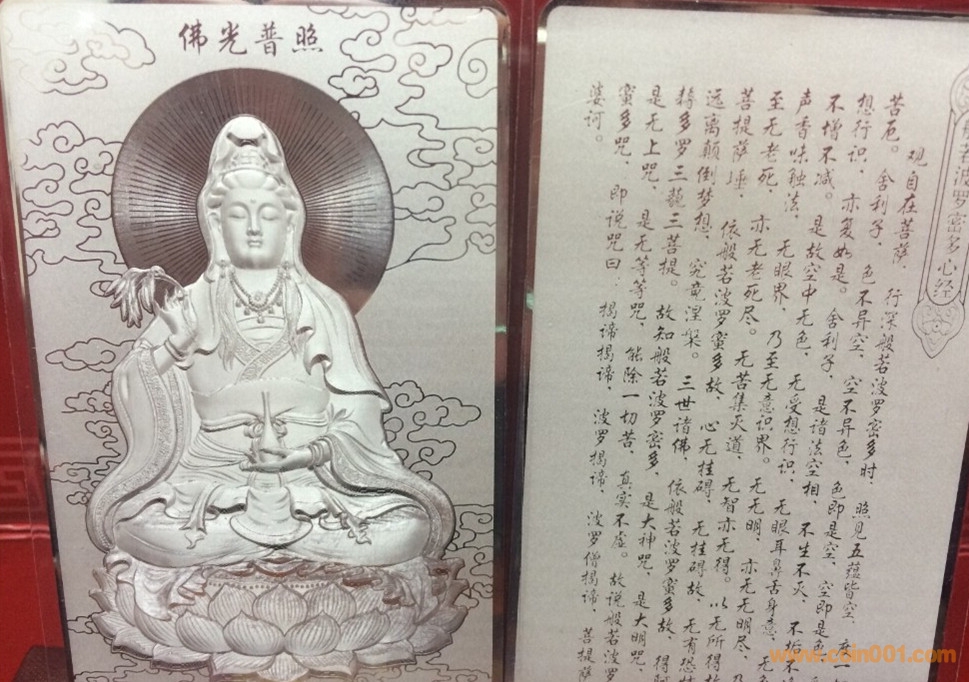 佛光普照
若波罗密多心经
观自在菩萨、行深般若波罗密多时、照见五蕴皆空、度一
苦厄。舍利子、色不异空、空不异色、色即是空、空即是色
想行识、亦复如是。舍利子、是诸法空相、不生不灭、不垢不
不增不减。是故空中无色、无受想行识、无眼耳鼻舌身意、无
声香味触法、无眼界、乃至无意识界。无无明、亦无无明尽、乃
至无老死、亦无老死尽。无苦集灭道、无智亦无得。以无所得故
菩提萨埵、依般若波罗蜜多故、心无挂碍、无挂碍故、无有恐怖
远离颠倒梦想、究竟涅槃。三世诸佛、依般若波罗蜜多故、得阿
耨多罗三藐三菩提。故知般若波罗密多、是大神咒、是大明咒、
是无上咒、是无等等咒、能除一切苦、真实不虚。故说般若波罗
蜜多咒、即说咒曰、揭谛揭谛、波罗揭谛、波罗僧揭谛、菩提萨
婆诃。
www.coin001.com